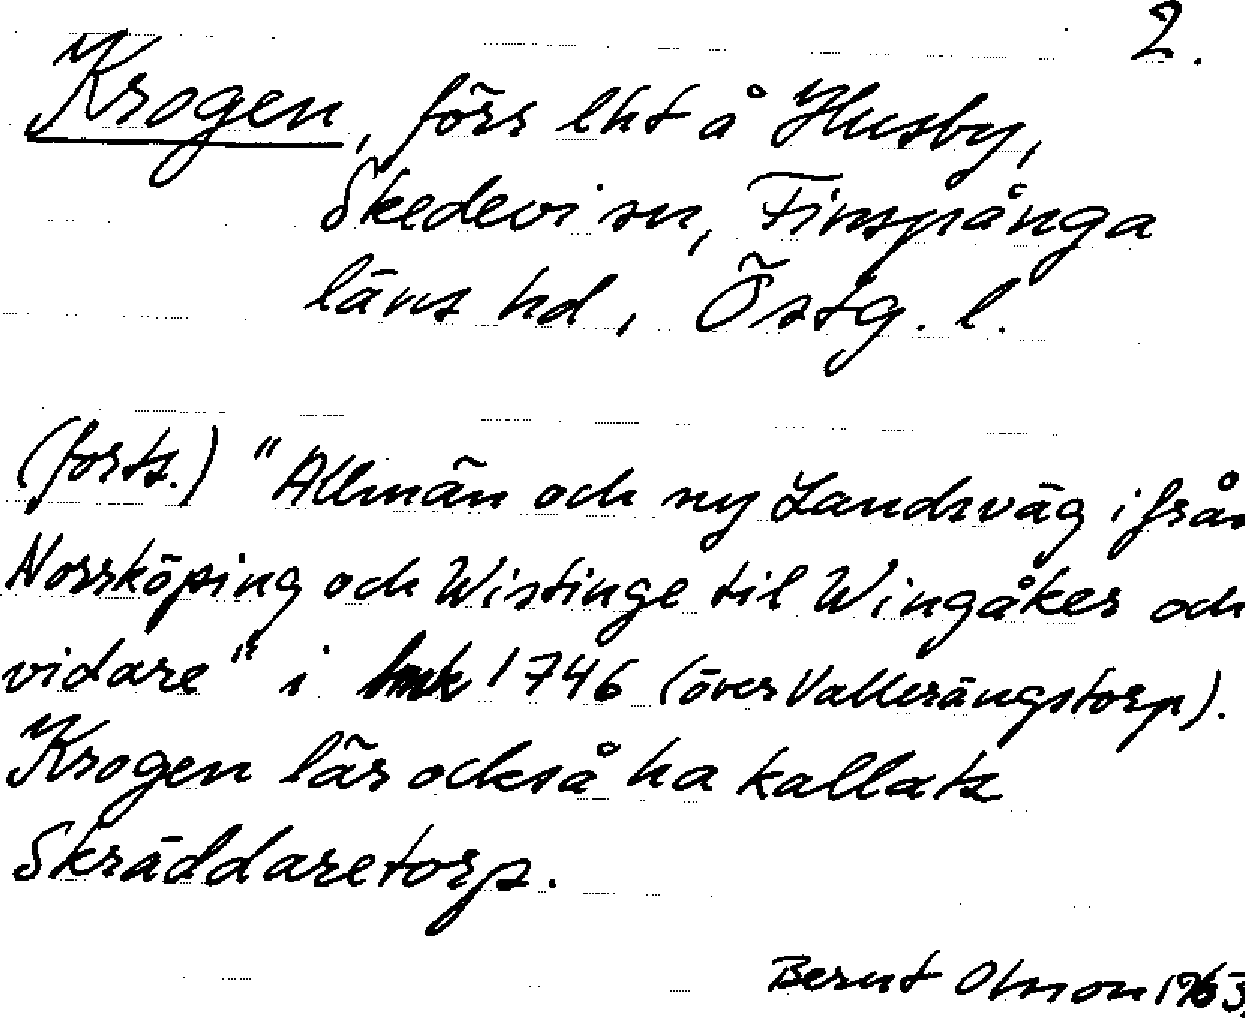 2.
Krogen, förs lht å Husby,
Skedevi sn, Finspånga
läns hd, Östg. l.
(forts.) "Allmän och ny Landsväg ifrån
Norrköping och Wistinge til Wingåker och
vidare" i 1746 (över Vallerängstorp).
Krogen lär också ha kallats
Skräddaretorp.
Bernt Olsson 1963.